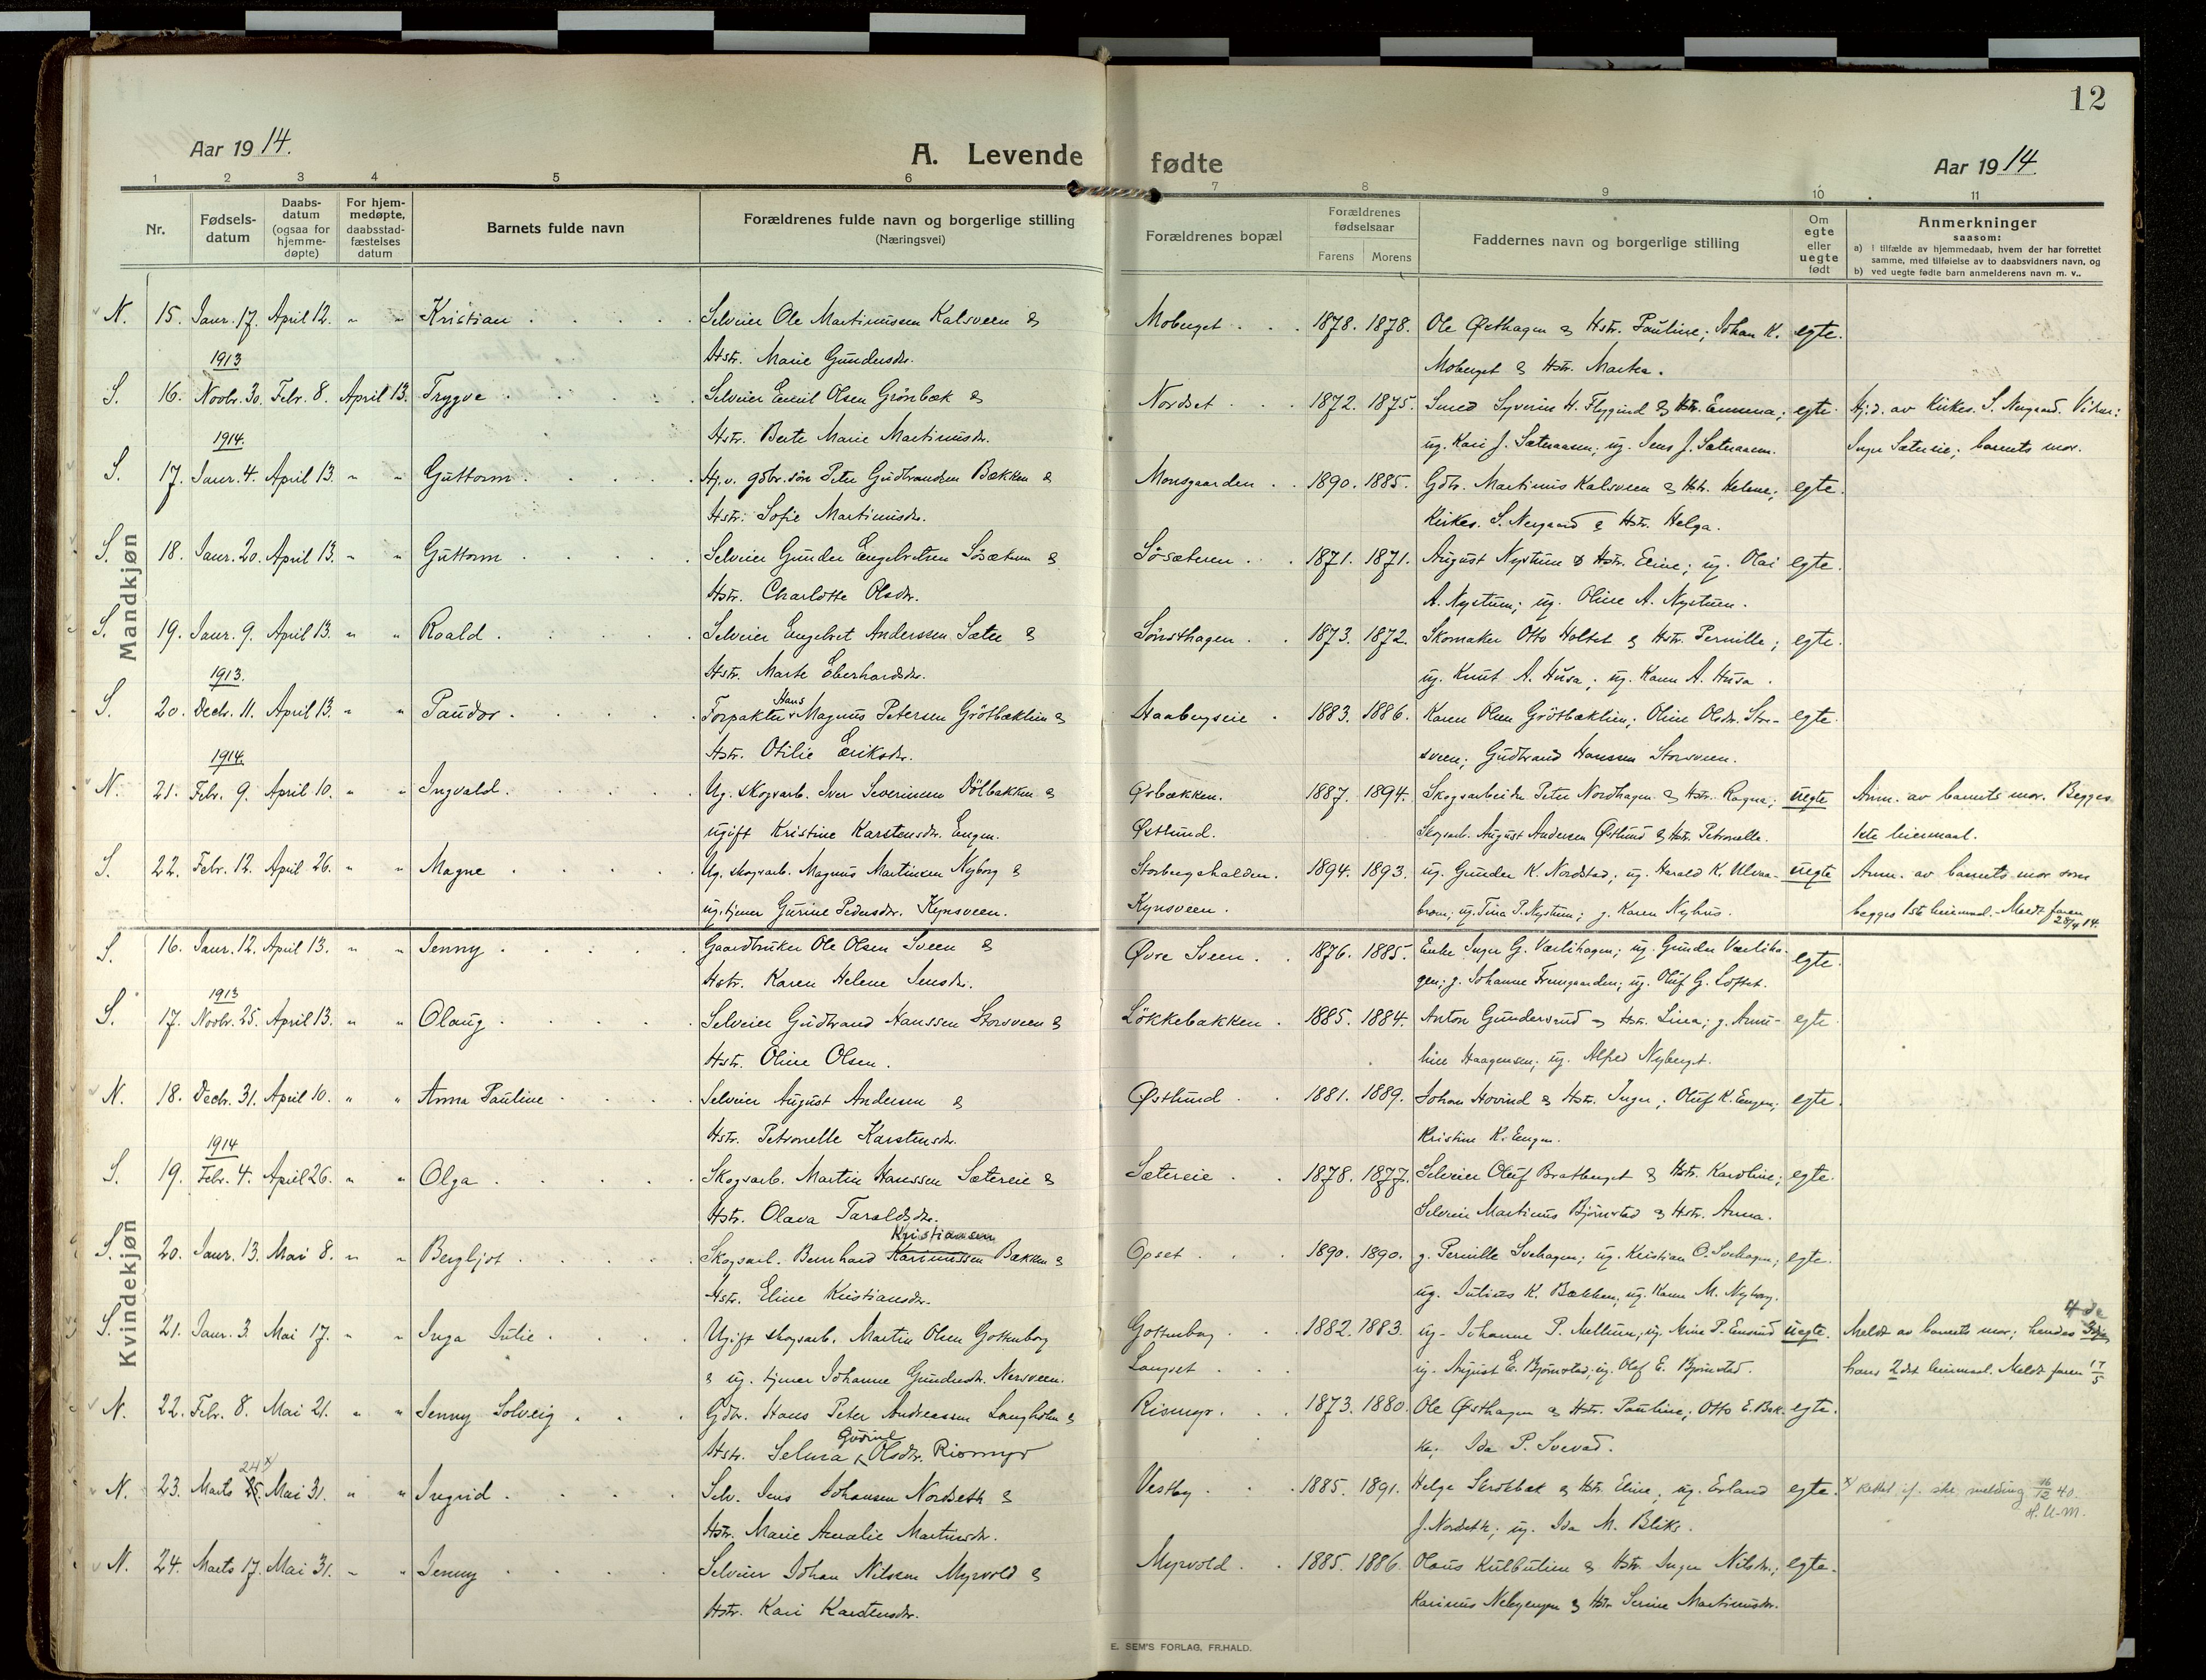 12
Aar 1914. A. Levende fødte Aar 1914
1 2 3 4 5 6 7 8 9 10 11
Nr. Fødsels-datum Daabs-datum (ogsaa for hjemme-døpte) For hjem-medøpte, daabsstad-fæstelses datum Barnets fulde navn Forældrenes fulde navn og borgerlige stilling (Næringsvei) Forældrenes bopæl Forældrenes fødselsaar Farens Morens Faddernes navn og borgerlige stilling Om egte eller uegte født Anmerkninger saasom:
a) i tilfælde av hjemmedaab, hvem der har forrettet samme, med tilføielse av to daabsvidners navn, og
b) ved uegte fødte barn anmelderens navn m. v..
Mandkjøn
N. 15. Janr. 17. April 12. " " Kristian Selveier Ole Martinussen Kalsveen & Moberget 1878. 1878. Ole Østhagen & Hstr. Pauline; Johan K. egte.
Hstr. Marie Gundersdr. Moberget & Hstr. Martea.
1913
S. 16. Novbr. 30. Febr. 8. April 13. Trygve Selveier Emil Olsen Grönbæk & Nordset 1872. 1875. Smed Syverin H. Flygind & Hstr. Emma; egte. Hj.d. av Kirkes. S. Nergaard. Vidner:
Hstr. Berte Marie Martinusdr. ug. Kari J. Sæteraasen; ug. Jens J. Sæteraasen. Inger Sætereie; barnets mor.
1914.
S. 17. Janr. 4. April 13. " " Guttorm Hj.v. gdbr.søn Peter Gudbrandsen Bækken & Monsgaarden 1890. 1885. Gdbr. Martinus Kalsveen & Hstr. Helene; egte.
Hstr. Sofie Martinusdr. Kirkes. S. Nergaard & Hstr. Helga.
S. 18. Janr. 20. April 13. " " Guttorm Selveier Gunder Engebretsen Søsæteren & Søsæteren 1871. 1871. August Nystuen & Hstr. Eline; ug. Olai egte.
Hstr. Charlotte Olsdr. A. Nystuen; ug. Oline A. Nystuen.
S. 19. Janr. 9. April 13. " " Roald Selveier Engebret Anderssen Sæter & Sönsthagen 1873. 1872. Skomaker Otto Holtet & Hstr. Pernille; egte.
Hstr. Marte Eberhardsdr. ug. Knut A. Husa; ug. Karen A. Husa.
1913.
S. 20. Decbr. 11. April 13. " " Paudor Forpakter Hans Magnus Petersen Grötbæklien & Haabergseie 1883. 1886. Karen Olsen Grötbæklien; Oline Olsdr. Stor- egte.
Hstr. Otilie Eriksdr. sveen; Gudbrand Hanssen Storsveen.
1914.
N. 21. Febr. 9. April 10. " " Ingvald Ug. skogsarb. Iver Severinsen Dölbakken & Ørbækken. 1887. 1894. Skogsarbeider Peter Nordhagen & Hstr. Ragna; uegte Anm. av barnets mor. Begges
ugift Kristine Karstensdr. Engen. Østlund. Skogsarb. August Andersen Østlund & Hstr. Petronelle. 1ste leiermaal.
S. 22. Febr. 12. April 26. " " Magne Ug. skogsarb. Magnus Martinsen Nyborg & Storbergshalden. 1894. 1893. ug. Gunder K. Nordstad; ug. Harald K. Ulvaa- uegte Anm. av barnets mor som
ug. tjener Gurine Pedersdr. Kynsveen. Kynsveen. broen; ug. Tina P. Nystuen; g. Karen Nyhus. begges 1ste leiermaal. - Meldt faren 28/4 14.
Kvindekjøn
S. 16. Janr. 12. April 13. " " Jenny Gaardbruker Ole Olsen Sveen & Øvre Sveen 1876. 1885. Enke Inger G. Værlihagen; ug. Gunder Værliha- egte.
Hstr. Karen Helene Jensdr. gen; g. Johanne Fremgaarden; ug. Oluf G. Loftet.
1913
S. 17. Novbr. 25. April 13. " " Olaug Selveier Gudbrand Hanssen Storsveen & Løkkebakken 1885. 1884. Anton Gundersrud & Hstr. Lina; g. Anne- egte.
Hstr. Oline Olsen. line Haagensen; ug. Alfred Nyberget.
N. 18. Decbr. 31. April 10. " " Anna Pauline Selveier August Andersen & Østlund 1881. 1889. Johan Hovind & Hstr. Inger; Oluf K. Engen; egte.
Hstr. Petronelle Karstensdr. Kristine K. Engen.
1914
S. 19. Febr. 4. April 26. " " Olga Skogsarb. Martin Hanssen Sætereie & Sætereie 1878. 1877. Selveier Oluf Bratberget & Hstr. Karoline; egte.
Hstr. Olava Taraldsdr. Selveier Martinus Björnstad & Hstr. Anna.
Kristiansen
S. 20. Janr. 13. Mai 8. " " Bergljot Skogsarb. Bernhard Karinussen Bækken & Opset 1890. 1890. g. Pernille Svehagen; ug. Kristian O. Svehagen; egte.
Hstr. Eline Kristiansdr. ug. Julius K. Bækken; ug. Karen M. Nyborg.
S. 21. Janr. 3. Mai 17. " " Inga Julie Ugift skogsarb. Martin Olsen Gottenborg Gottenborg 1882. 1883. ug. Johanne P. Mellum; ug. Mina P. Ensrud uegte. Meldt av barnets mor; hendes
& ug. tjener Johanne Gundersdr. Nersveen. Langset ug. August E. Bjørnstad; ug. Olaf E. Bjørnstad. hans 2det leiermaal. Meldt faren 17/5
N. 22. Febr. 8. Mai 21. " " Jenny Solveig Gdbr. Hans Peter Andreassen Langholen & Rismyr 1873. 1880. Ole Østhagen & Hstr. Pauline; Otto E. Bek- egte.
Hstr. Selma Gurine Olsdr. Rismyr ke; Ida P. Svevad.
24 x/
N. 23. Marts 25. Mai 31. " " Ingrid Selv. Jens Johansen Nordseth & Vestby 1885. 1891. Helge Skrökbæk & Hstr. Eline; ug. Erland egte. x/ Rettet if. skr. melding 16/12 40.
Hstr. Marie Amalie Martinsdr. J. Nordseth; ug. Ida M. Bliks. H.U-M.
N. 24. Marts 17. Mai 31. " " Jenny Selveier Johan Nilsen Myrvold & Myrvold 1885. 1886. Olaus Kulbulien & Hstr. Inger Nilsdr.; egte.
Hstr. Kari Karstensdr. Karinus Nebyengen & Hstr. Serine Martinusdr.
E. SEM'S FORLAG, FR.HALD.